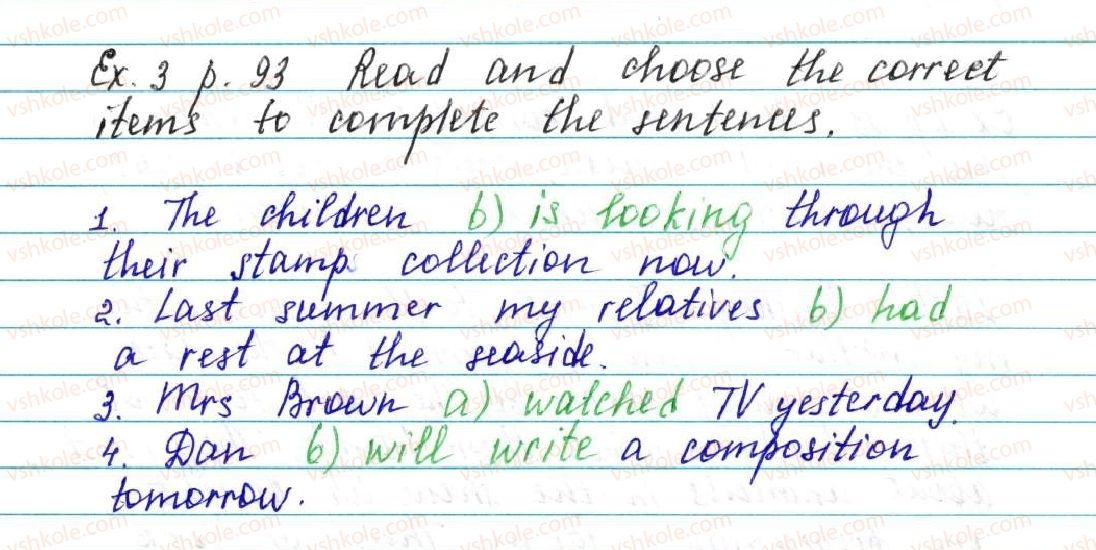 Ex. 3 p. 93 Read and choose the correct
items to complete the sentences.
1. The children b) is looking through
their stamp collection now.
2. Last summer my relatives b) had
a rest at the seaside.
3. Mrs Brown a) watched TV yesterday.
4. Dan b) will write a composition
tomorrow.